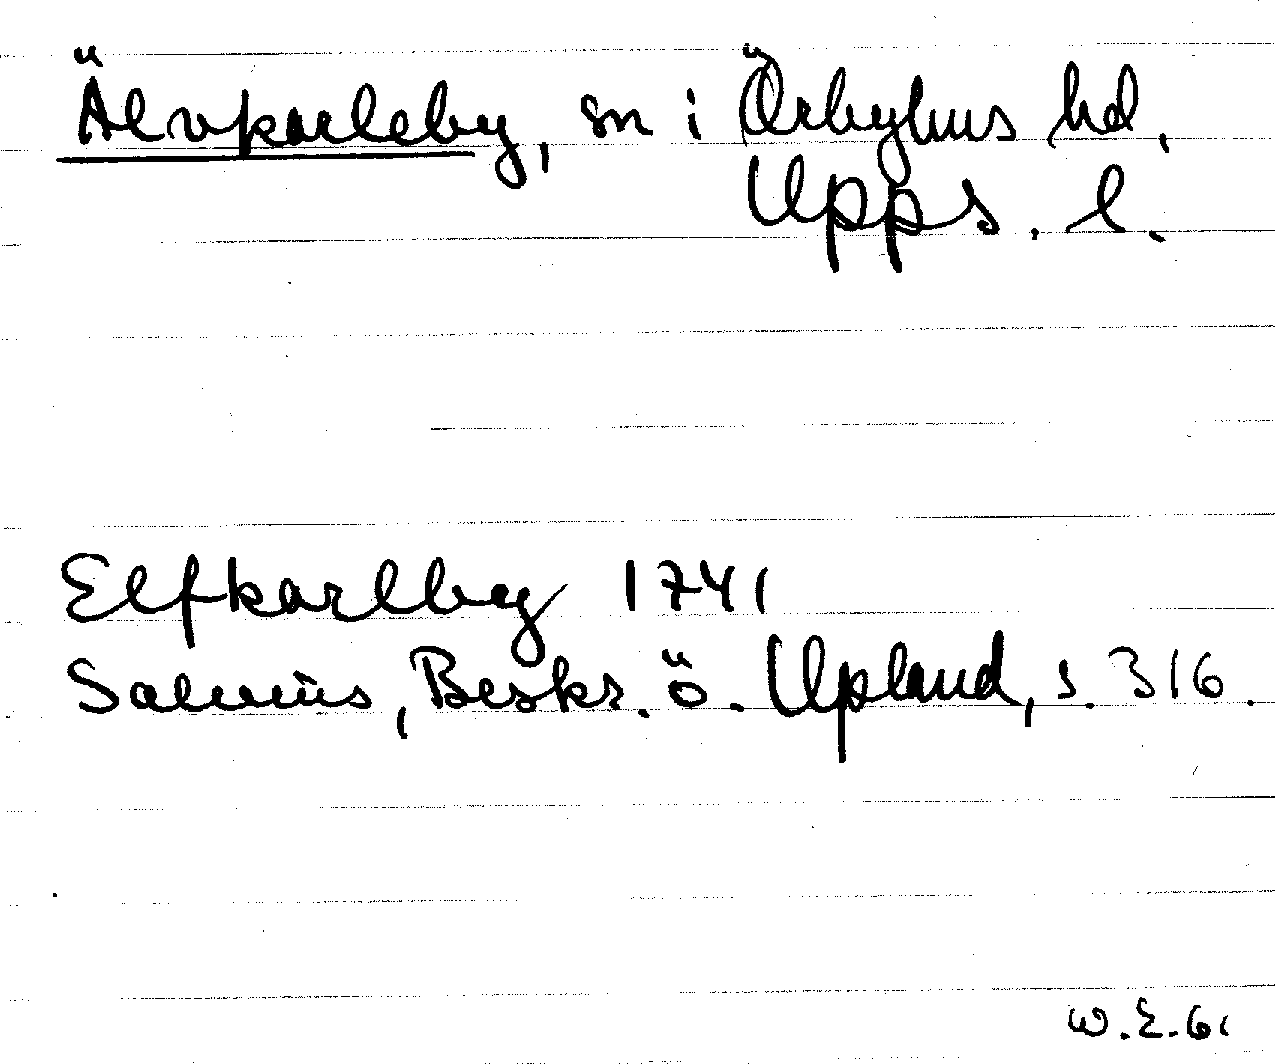 Älvkarleby, sn i Örbyhus hd.
Upps. l.
Elfkarlby 1741
Salvius, Beskr. ö. Upland, s. 316.
W.E.61